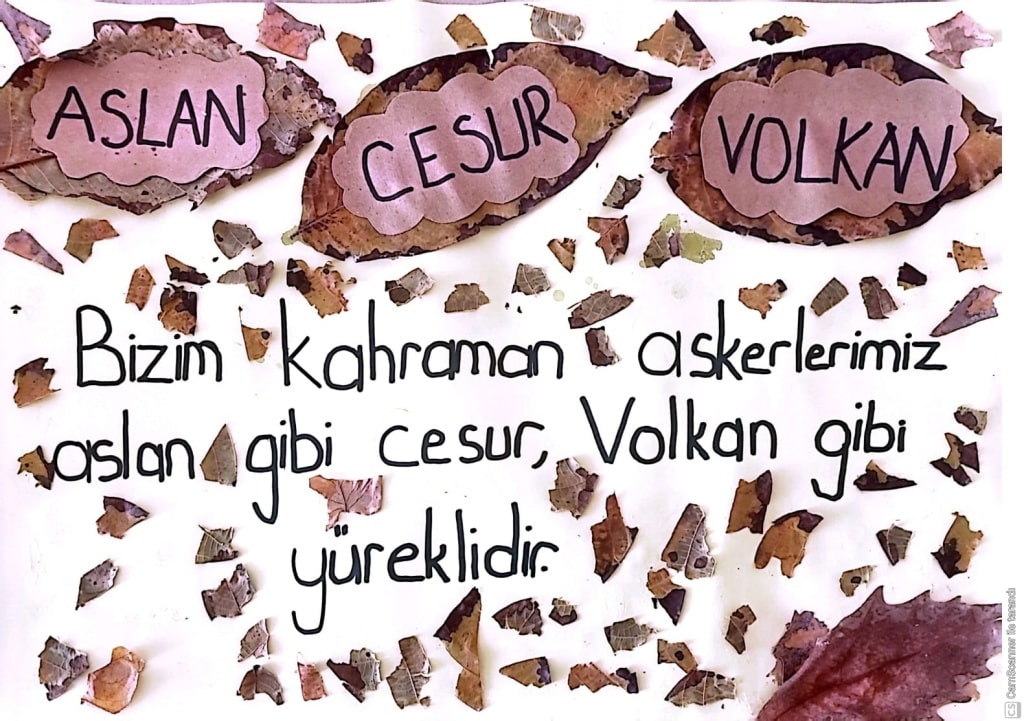 ASLAN CESUR VOLKAN
Bizim kahraman askerlerimiz
aslan gibi cesur, Volkan gibi
yüreklidir.
CS CamScanner ile tarandı